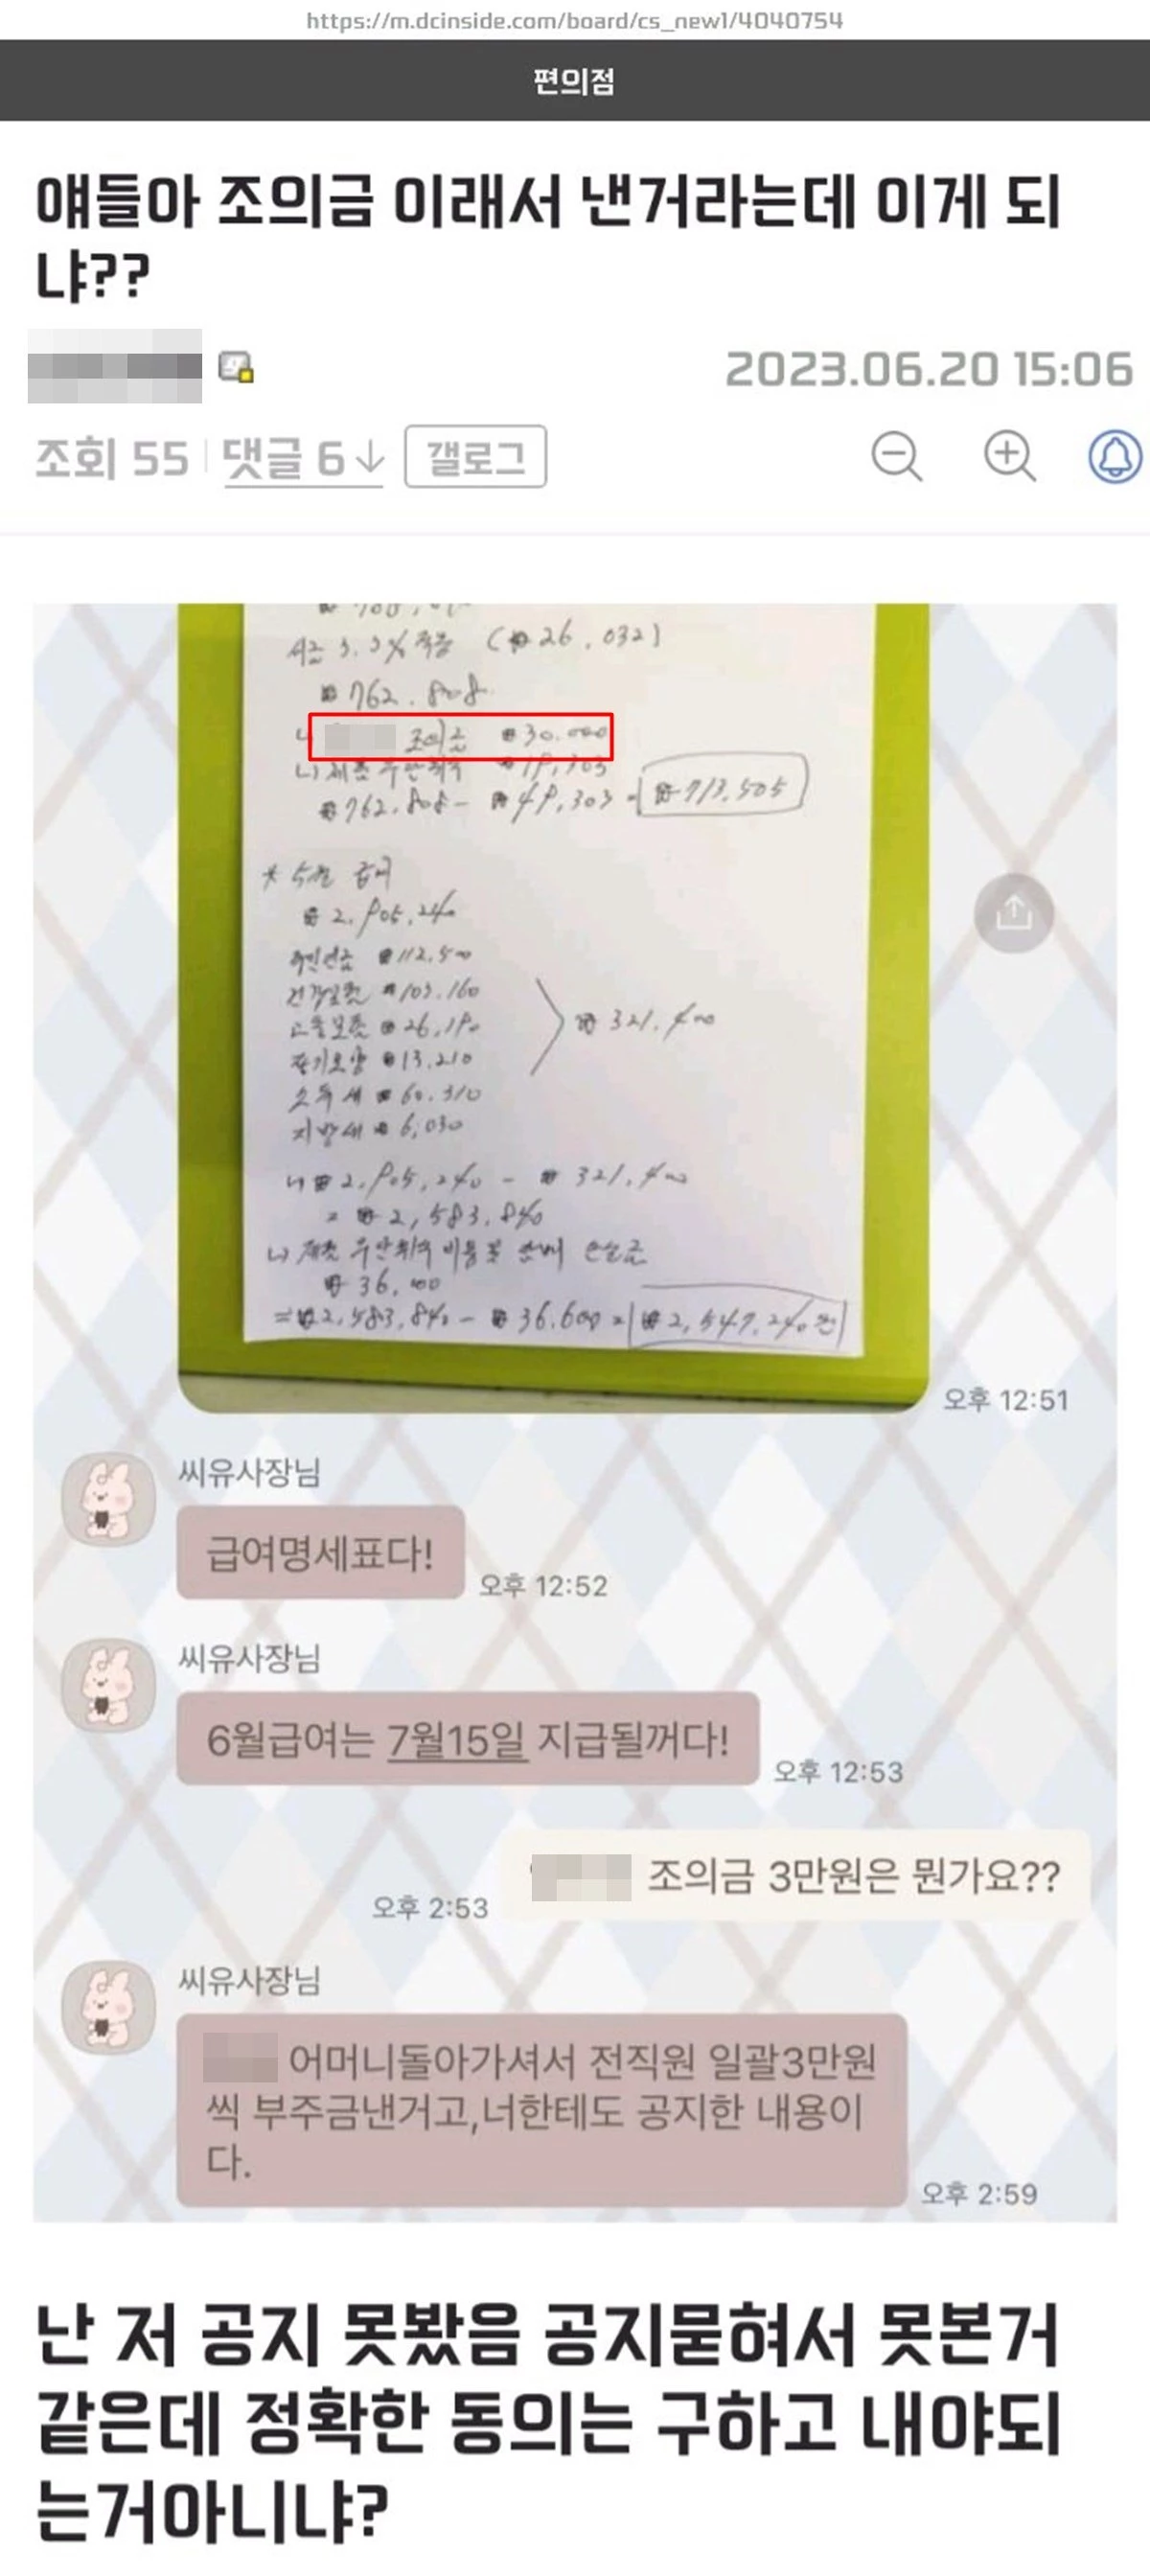 https://m.dcinside.com/board/cs_new1/4040754
편의점
얘들아 조의금 이래서 낸거라는데 이게 되
냐??
2023.06.20 15:06
조회 55 댓글 6 갤로그
3.3% 적용 (₩26,032)
₩762,808
조의금 ₩30,000
ㄴ) 제품 무단취식 ₩19,303
₩762,808 - ₩49,303 = ₩713,505
급여
₩2,905,240
국민연금 ₩112,500
건강보험 ₩103,160
고용보험 ₩26,190
장기요양 ₩13,210
₩321,400
소득세 ₩60,310
지방세 ₩6,030
₩2,905,240 - ₩321,400
= ₩2,583,840
ㄴ) 제품 무단취식 비용 및 담배 손실금
₩36,600
= ₩2,583,840 - ₩36,600 = ₩2,547,240원
오후 12:51
씨유사장님
급여명세표다!
오후 12:52
씨유사장님
6월급여는 7월15일 지급될꺼다!
오후 12:53
조의금 3만원은 뭔가요??
오후 2:53
씨유사장님
어머니돌아가셔서 전직원 일괄3만원
씩 부주금낸거고,너한테도 공지한 내용이
다.
오후 2:59
난 저 공지 못봤음 공지묻혀서 못본거
같은데 정확한 동의는 구하고 내야되
는거아니냐?